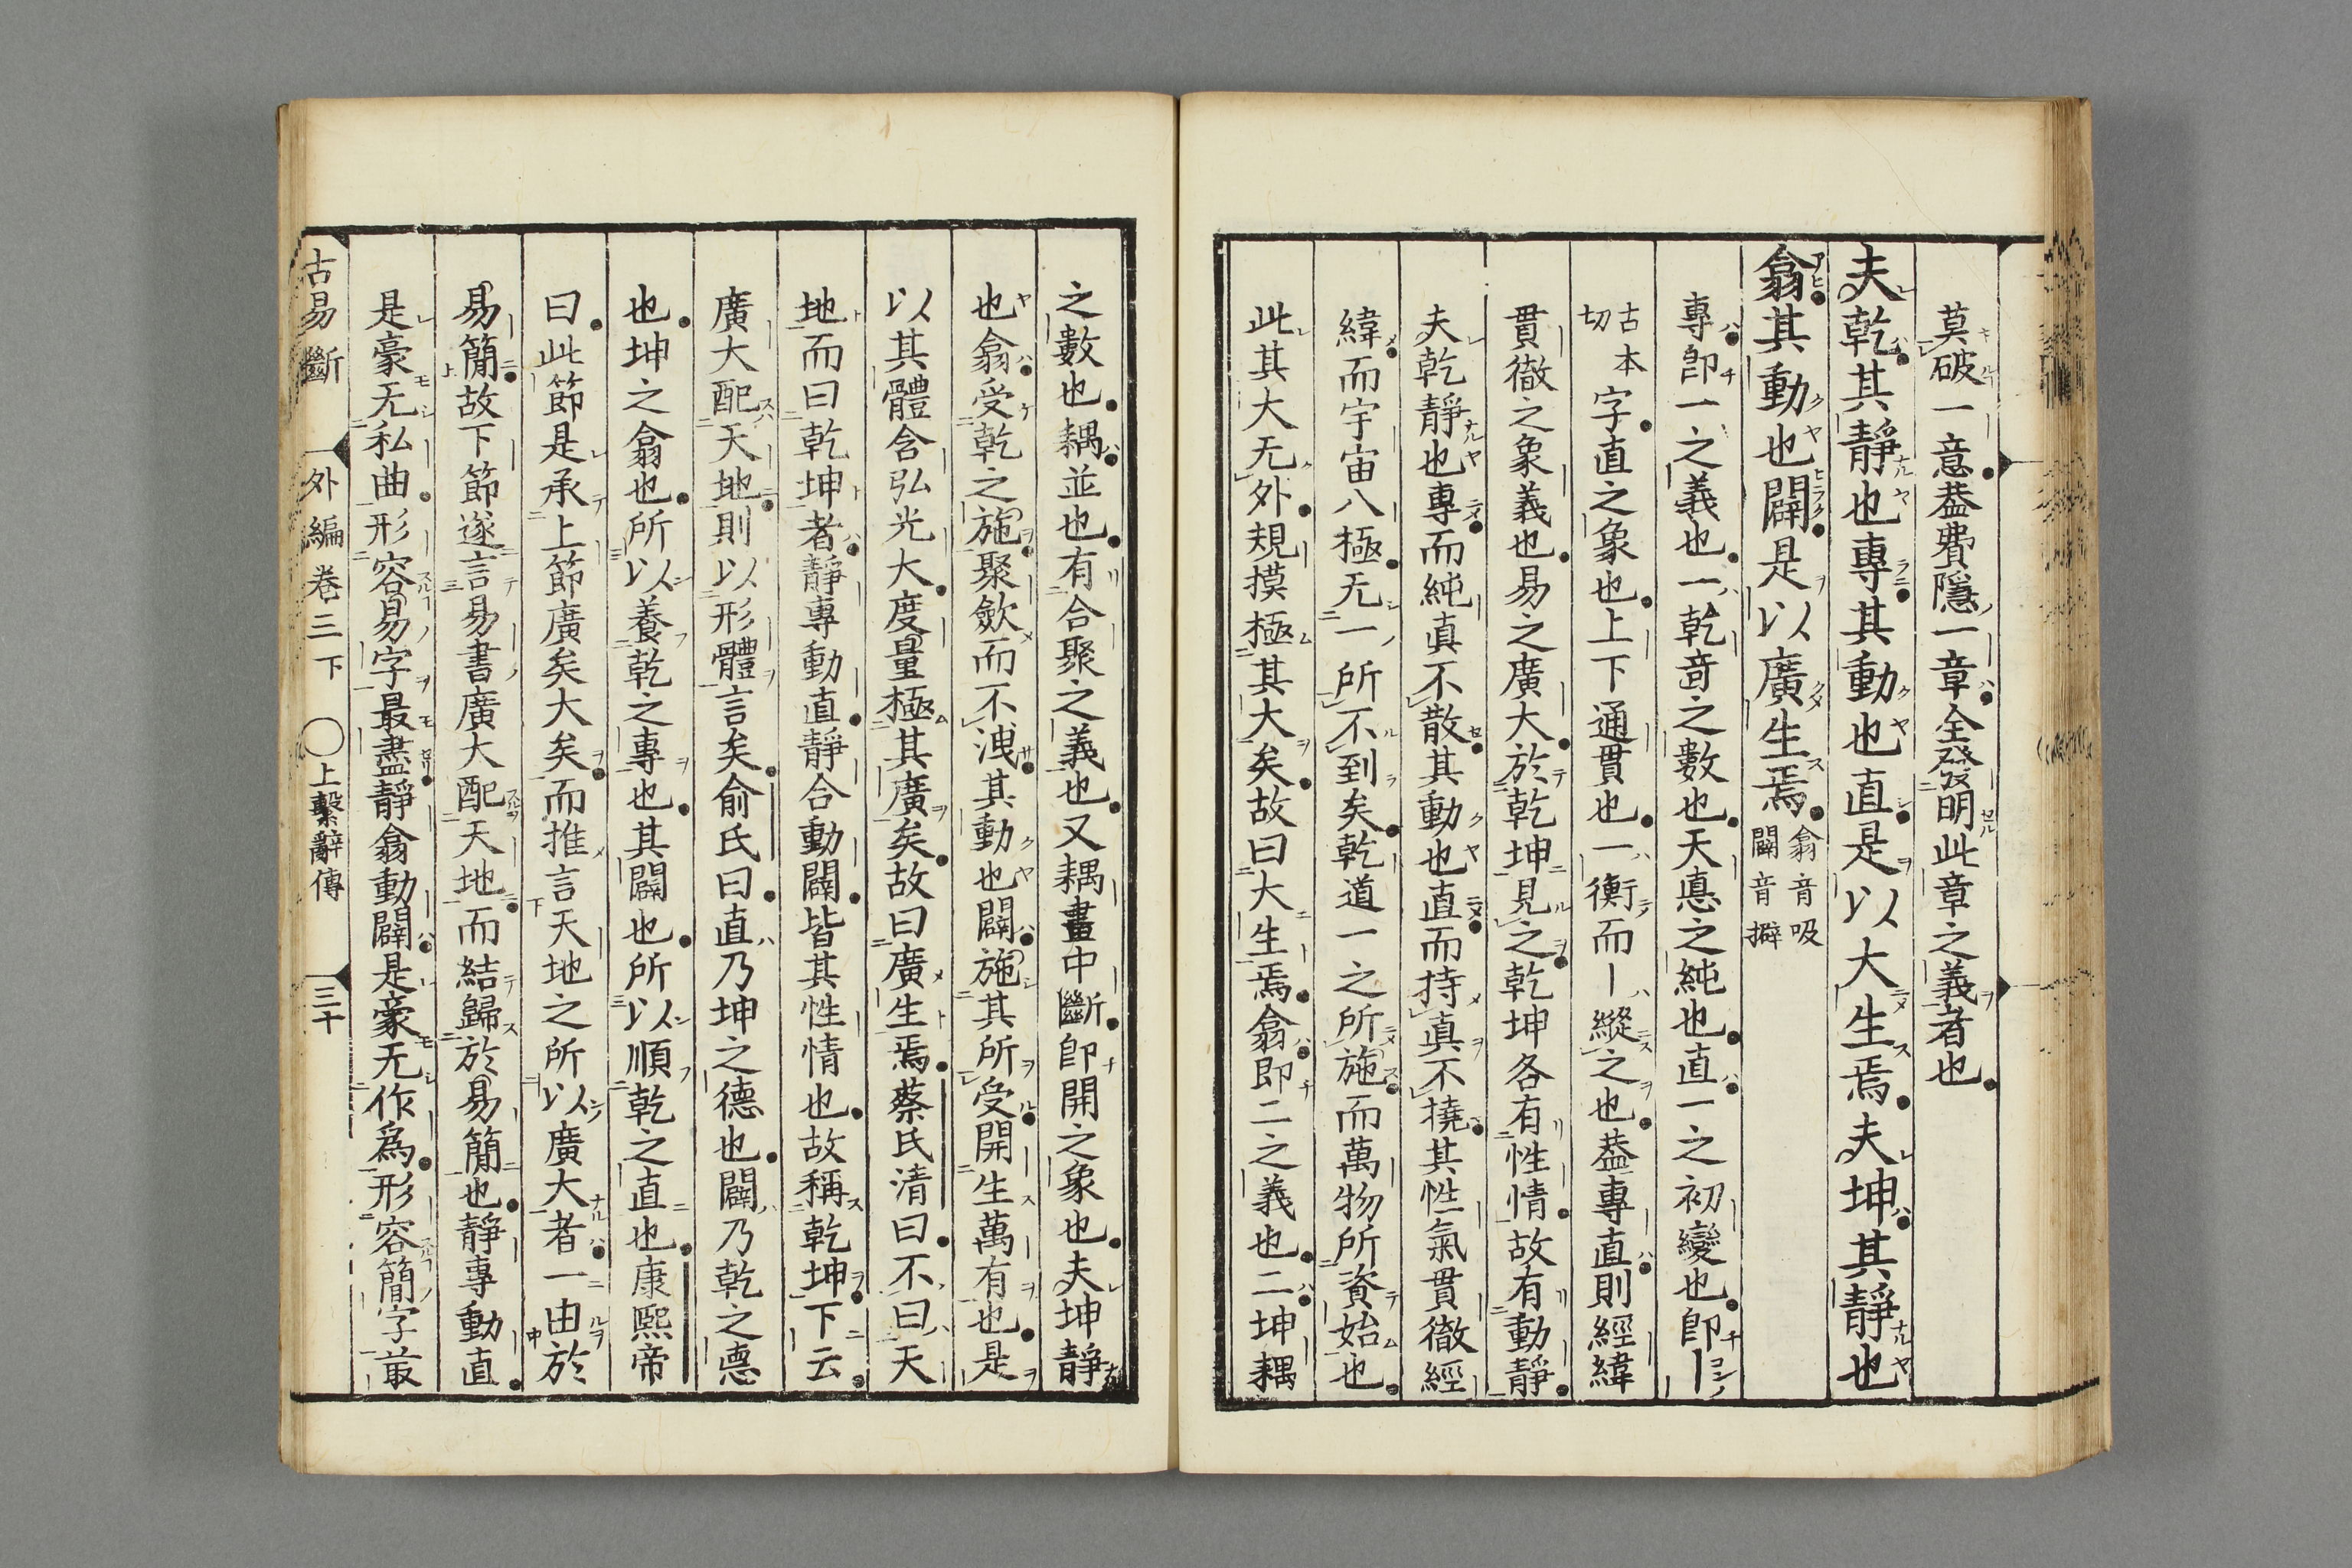 莫破一意蓋費隱一章全發明此章之義者也
夫乾其靜也專其動也直是以大生焉夫坤其靜也
翕其動也闢是以廣生焉翕音吸闢音擗
專卽一之義也一乾奇之數也天悳之純也直一之初變也卽丨
古本切字直之象也上下通貫也一衡而丨縱之也蓋專直則經緯
貫徹之象義也易之廣大於乾坤見之乾坤各有性情故有動靜
夫乾靜也專而純真不散其動也直而持真不撓其性氣貫徹經
緯而宇宙八極无一所不到矣乾道一之所施而萬物所資始也
此其大无外規摸極其大矣故曰大生焉翕即二之義也二坤耦
之數也耦並也有合聚之義也又耦畫中斷卽開之象也夫坤靜
也翕受乾之施聚歛而不洩其動也闢施其所受開生萬有也是
以其體含弘光大度量極其廣矣故曰廣生焉蔡氏清曰不曰天
地而曰乾坤者靜專動直靜合動闢皆其性情也故稱乾坤下云
廣大配天地則以形體言矣俞氏曰直乃坤之德也闢乃乾之悳
也坤之翕也所以養乾之專也其闢也所以順乾之直也康熙帝
曰此節是承上節廣矣大矣而推言天地之所以廣大者一由於
易簡故下節遂言易書廣大配天地而結歸於易簡也靜專動直
是豪无私曲形容易字最盡靜翕動闢是豪无作爲形容簡字最
古易斷 外編卷三下 ○上繫辭傳 三十